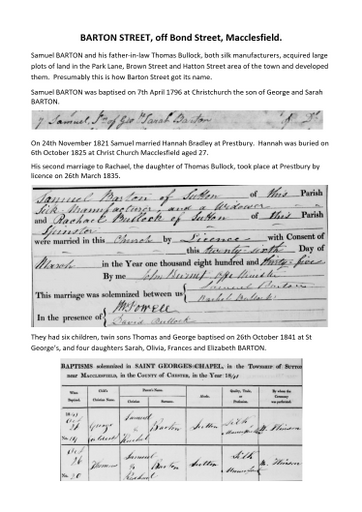 BARTON STREET, off Bond Street, Macclesfield.
Samuel BARTON and his father-in-law Thomas Bullock, both silk manufacturers, acquired large
plots of land in the Park Lane, Brown Street and Hatton Street area of the town and developed
them. Presumably this is how Barton Street got its name.
Samuel BARTON was baptised on 7th April 1796 at Christchurch the son of George and Sarah
BARTON.
7 Samuel, Sn of Geo & Sarah Barton
On 24th November 1821 Samuel married Hannah Bradley at Prestbury. Hannah was buried on
6th October 1825 at Christ Church Macclesfield aged 27.
His second marriage to Rachael, the daughter of Thomas Bullock, took place at Prestbury by
licence on 26th March 1835.
Samuel Barton of Sutton of this Parish
Silk Manufacturer and a Widower
and Rachael Bullock of Sutton of this Parish
Spinster
were married in this Church by Licence with Consent of
this twenty sixth Day of
March in the Year One thousand eight hundred and thirty five
By me John Minister
This marriage was solemnized between us Samuel Barton
Rachel Bullock
In the presence of
David Bullock
They had six children, twin sons Thomas and George baptised on 26th October 1841 at St
George's, and four daughters Sarah, Olivia, Frances and Elizabeth BARTON.
BAPTISMS solemnized in SAINT GEORGES-CHAPEL, in the Township of SUTTON
near MACCLESFIELD, in the COUNTY OF CHESTER, in the Year 1841
When Baptized. Child's Christian Name. Parent's Name. Christian. Surname. Abode. Quality, Trade, or Profession. By whom the Ceremony was performed.
1841 Oct 26 George Samuel & Rachel Barton Sutton Silk Manufacturer
Oct 26 Thomas Samuel & Rachael Barton Sutton Silk Manufacturer